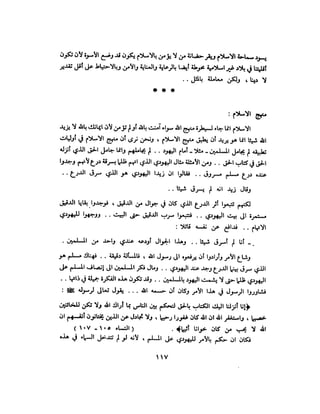 يسود سماحة الاسلام وبقر حضانة من لا يؤمن بالاسلام يكون قد وضع الأسوة لأن تكون
أقليتنا في بلاد غير اسلامية محوطة أيضا بالرعاية والعناية والأمن وبالاحتياط على أقل تقدير
لا دينا ، ولكن معاملة بالمثل ..
* * *
منهج الاسلام :
الاسلام انما جاء لسيطرة منهج الله سواء آمنت بالله أو لم تؤمن لأن ايمانك بالله لا يزيد
الله شيئا انما هو يريد أن يطبق منهج الاسلام ، ونحن نرى أن منهج الاسلام في أوليات
تطبيقه لم يجامل المسلمين ـ مثلا ـ أمام اليهود .. لم يجاملهم وانما جامل الحق الذي أنزله
الحق في كتاب الحق .. ومن الأمثلة مثال اليهودي الذي اتهم ظلما بسرقة درع لأنهم وجدوا
عنده درع مسلم مسروق .. فقالوا ان زيدا اليهودي هو الذي سرق الدرع ..
وقال زيد انه لم يسرق شيئا ..
لكنهم تتبعوا أثر الدرع الذي كان في جوال من الدقيق ، فوجدوا بقايا الدقيق
مستمرة الى بيت اليهودي .. فتتبعوا سرب الدقيق حتى البيت .. ووجهوا لليهودي
الاتهام .. فدافع عن نفسه قائلا :
ـ أنا لم أسرق شيئا .. وهذا الجوال أودعه عندي واحد من المسلمين .
وشاع الأمر وأرادوا أن يرفعوه الى رسول الله ، فالمسألة دقيقة .. فهناك مسلم هو
الذي سرق بينما الدرع وجد عند اليهودي .. ومال فكر المسلمين الى إنصاف المسلم على
اليهودي ظلما حتى لا يشمت اليهود بالمسلمين .. وقد تكون هذه الفكرة جميلة في ذاتها ..
فشاوروا الرسول في هذا الأمر وكان أن حسمه الله ... يقول تعالى لرسوله ﷺ :
﴿إنا أنزلنا اليك الكتاب بالحق لتحكم بين الناس بما أراك الله ولا تكن للخائنين
خصيما ، واستغفر الله ان الله كان غفورا رحيما ، ولا تجادل عن الذين يختانون أنفسهم ان
الله لا يحب من كان خوانا أثيما﴾ . ( النساء ١٠٥ - ١٠٧ )
فكان ان حكم بالأمر لليهودي على المسلم ، لأنه لو لم تتدخل السماء في هذه
١١٧